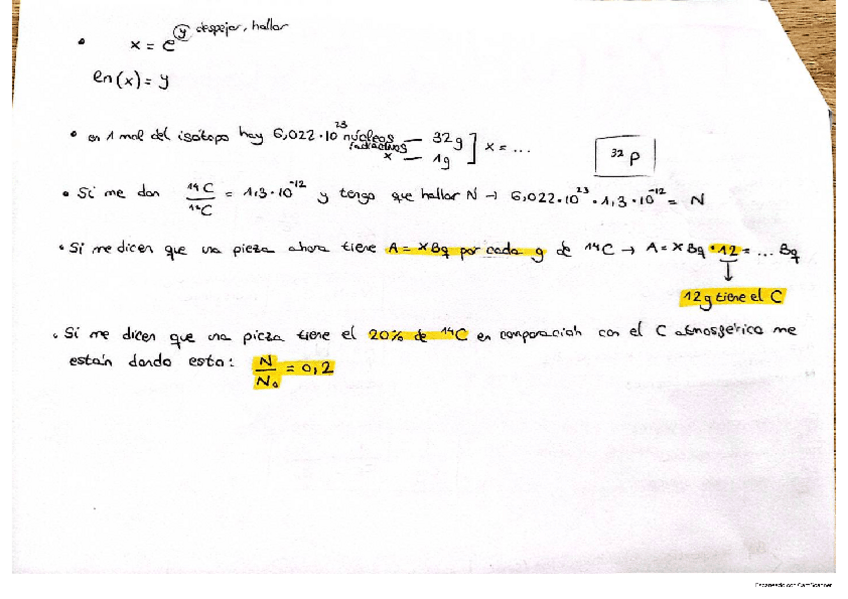 • x = e^y despejar, hallar
en(x) = y
• en 1 mol del isótopo hay 6,022·10^23 núcleos radiactivos — 32g ] x = ...
x — 1g
³²P
• Si me dan ¹⁴C/¹²C = 1,3·10^-12 y tengo que hallar N → 6,022·10^23·1,3·10^-12 = N
• Si me dicen que una pieza ahora tiene A = x Bq por cada g de ¹⁴C → A = x Bq · 12 = ... Bq
↓
12g tiene el C
• Si me dicen que una pieza tiene el 20% de ¹⁴C en comparación con el C atmosférico me
están dando esto: N/N₀ = 0,2
Escaneado con CamScanner